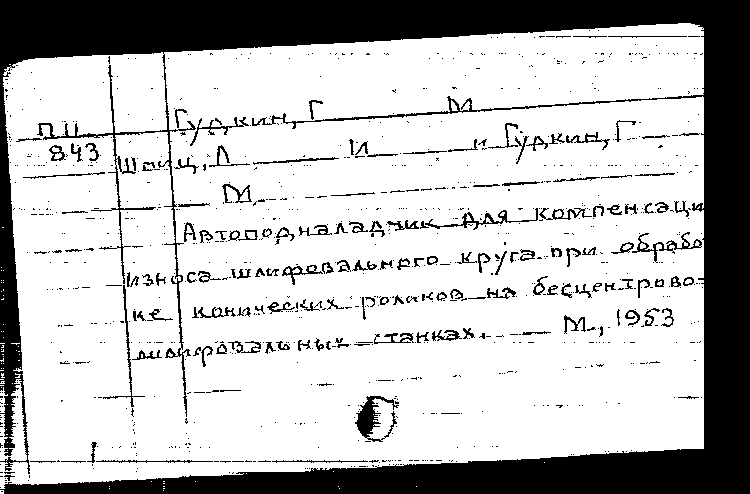 Гудкин, Г М
П 11
843 Шаиц, Л И и Гудкин, Г
М
Автоподналадчик для компенсаци
износа шлифовального круга при обрабо
ке конических роликов на бесцентрово-
шлифовальных станках. — М., 1953